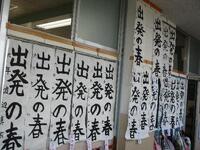 出発の春
出発の春
出発の春
出発の春
出発の春
出発の春
出発の春
出発の春
出発の春
出発の春